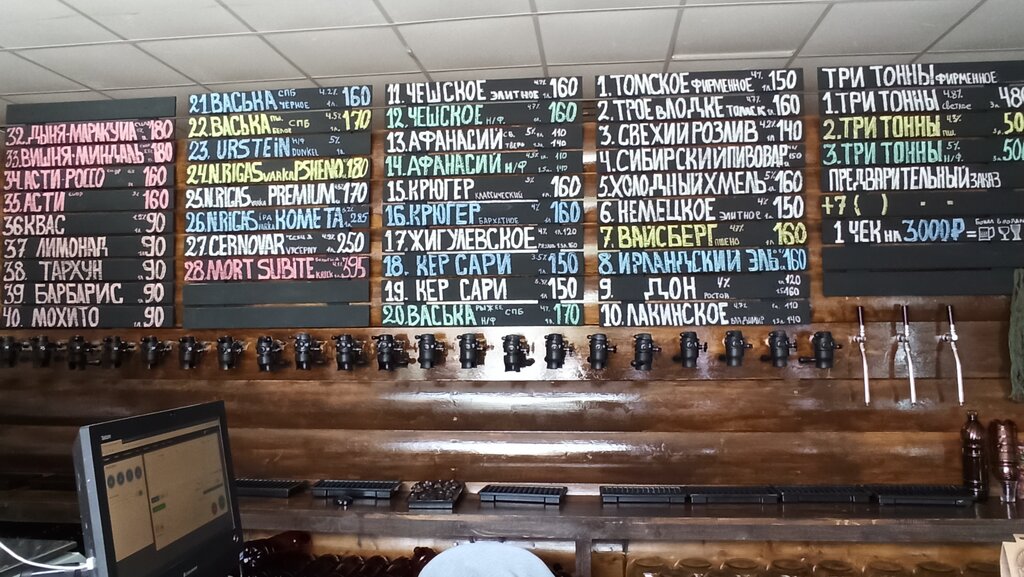 32. ДЫНЯ-МАРАКУЙА 180
33. ВИШНЯ-МИНДАЛЬ 180
34. АСТИ РОССО 160
35. АСТИ 160
36 КВАС 90
37 ЛИМОНАД 90
38 ТАРХУН 90
39 БАРБАРИС 90
40. МОХИТО 90
21. ВАСЬКА СПБ ЧЕРНОЕ 4.2% 160
22. ВАСЬКА СПБ БЕЛОЕ 4.5% 170
23. URSTEIN DUNKEL 160
24. N.RIGAS VARKA PSHENO 180
25. N.RIGAS PREMIUM 170
26. N.RIGAS IPA KOMETA 285
27. CERNOVAR 250
28 MORT SUBITE 395
11. ЧЕШСКОЕ ЭЛИТНОЕ 4% 160
12 ЧЕШСКОЕ Н/Ф. 4% 160
13. АФАНАСИЙ 110 140
14. АФАНАСИЙ Н/Ф. 110 140
15. КРЮГЕР КЛАССИЧЕСКИЙ 160
16. КРЮГЕР БАРХАТНОЕ 160
17. ЖИГУЛЕВСКОЕ
18. КЕР САРИ 3.5% 150
19. КЕР САРИ 150
20. ВАСЬКА РЫЖЕЕ СПБ Н/Ф 170
1. ТОМСКОЕ ФИРМЕННОЕ 4% 150
2. ТРОЕ В ЛОДКЕ ТОМСК 160
3. СВЕЖИЙ РОЗЛИВ 4.2% 140
4. СИБИРСКИЙ ПИВОВАР 150
5. ХОЛОДНЫЙ ХМЕЛЬ 5% 160
6. НЕМЕЦКОЕ ЭЛИТНОЕ 150
7. ВАЙСБЕРГ ПШЕНО 160
8. ИРЛАНДСКИЙ ЭЛЬ 160
9. ДОН РОСТОВ 4% 120 160
10. ЛАКИНСКОЕ ВЛАДИМИР 110 140
ТРИ ТОННЫ ФИРМЕННОЕ
1. ТРИ ТОННЫ 4.8% СВЕТЛОЕ 480
2. ТРИ ТОННЫ ПШ. 500
3. ТРИ ТОННЫ Н/Ф. 500
ПРЕДВАРИТЕЛЬНЫЙ ЗАКАЗ
+7 ( ) - -
1 ЧЕК НА 3000₽ =